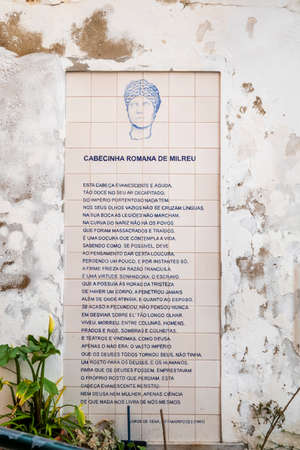 CABECINHA ROMANA DE MILREU
ESTA CABEÇA EVANESCENTE E AGUDA,
TÃO DOCE NO SEU AR DECAPITADO,
DO IMPÉRIO PORTENTOSO NADA TEM:
NOS SEUS OLHOS VAZIOS NÃO SE CRUZAM LÍNGUAS,
NA SUA BOCA AS LEGIÕES NÃO MARCHAM,
NA CURVA DO NARIZ NÃO HÁ OS POVOS
QUE FORAM MASSACRADOS E TRAÍDOS.
É UMA DOÇURA QUE CONTEMPLA A VIDA,
SABENDO COMO, SE POSSÍVEL, DEVE
AO PENSAMENTO DAR CERTA LOUCURA,
PERDENDO UM POUCO, E POR INSTANTES SÓ,
A FIRME FRIEZA DA RAZÃO TRANQUILA.
É UMA VIRTUDE SONHADORA: O ESCRAVO
QUE A POSSUÍA ÀS HORAS DA TRISTEZA
DE HAVER UM CORPO, A PENETROU JAMAIS
ALÉM DE ONDE ATINGIA; E QUANTO AO ESPOSO,
SE ACASO A FECUNDOU, NÃO PENSOU NUNCA
EM DESVIAR SOBRE EL' TÃO LONGO OLHAR.
VIVEU, MORREU, ENTRE COLUNAS, HOMENS,
PRADOS E RIOS, SOMBRAS E COLHEITAS,
E TEATROS E VINDIMAS, COMO DEUSA.
APENAS O NÃO ERA: O VASTO IMPÉRIO
QUE OS DEUSES TODOS TORNOU SEUS, NÃO TINHA
UM ROSTO PARA OS DEUSES. E OS HUMANOS,
PARA QUE OS DEUSES FOSSEM, EMPRESTAVAM
O PRÓPRIO ROSTO QUE PERDIAM. ESTA
CABEÇA EVANESCENTE RESISTIU:
NEM DEUSA NEM MULHER, APENAS CIÊNCIA
DE QUE NADA NOS LIVRA DE NÓS MESMOS.
JORGE DE SENA,